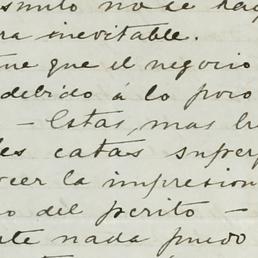 smito no se ha
ra inevitable.
ne que el negocio
debido á lo poro
- Estas, mas
les catas super
cer la impresion
o del perito -
te nada puedo